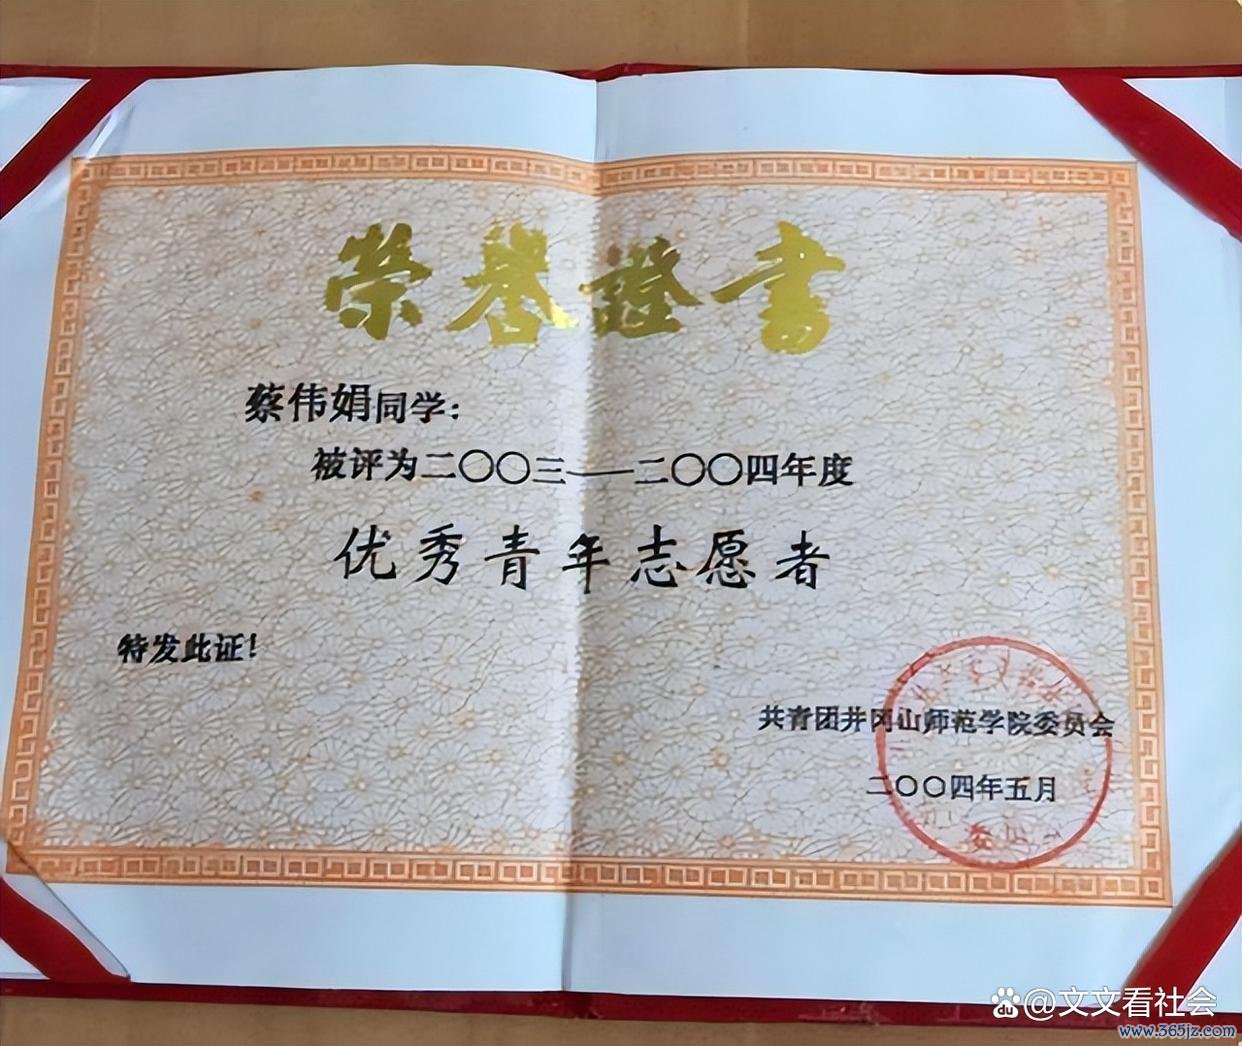 榮譽證書
蔡伟娟同学：
被评为二〇〇三——二〇〇四年度
优秀青年志愿者
特发此证！
共青团井冈山师范学院委员会
二〇〇四年五月
Bai du @文文看社会
www.365jz.com